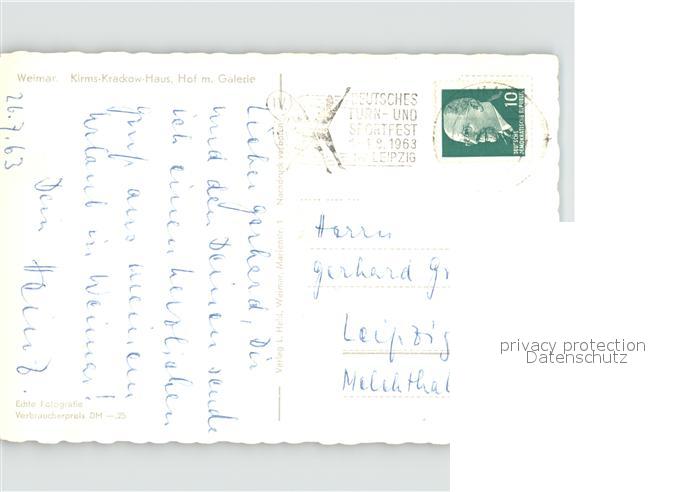 Weimar. Kirms-Krackow-Haus, Hof m. Galerie
26.7.63
Lieber Gerhard, Dir
und den Deinen sende
ich einen herzlichen
Gruß aus meinem
Urlaub in Weimar!
Dein Heinz.
Echte Fotografie
Verbraucherpreis DM —.25
Verlag L. Held, Weimar, Marienstr. 1 Nachdruck verboten
IV
DEUTSCHES
TURN- UND
SPORTFEST
1963
LEIPZIG
10
DEUTSCHE
DEMOKRATISCHE REPUBLIK
Herrn
Gerhard Gr
Leipzig
Melchthal
privacy protection
Datenschutz